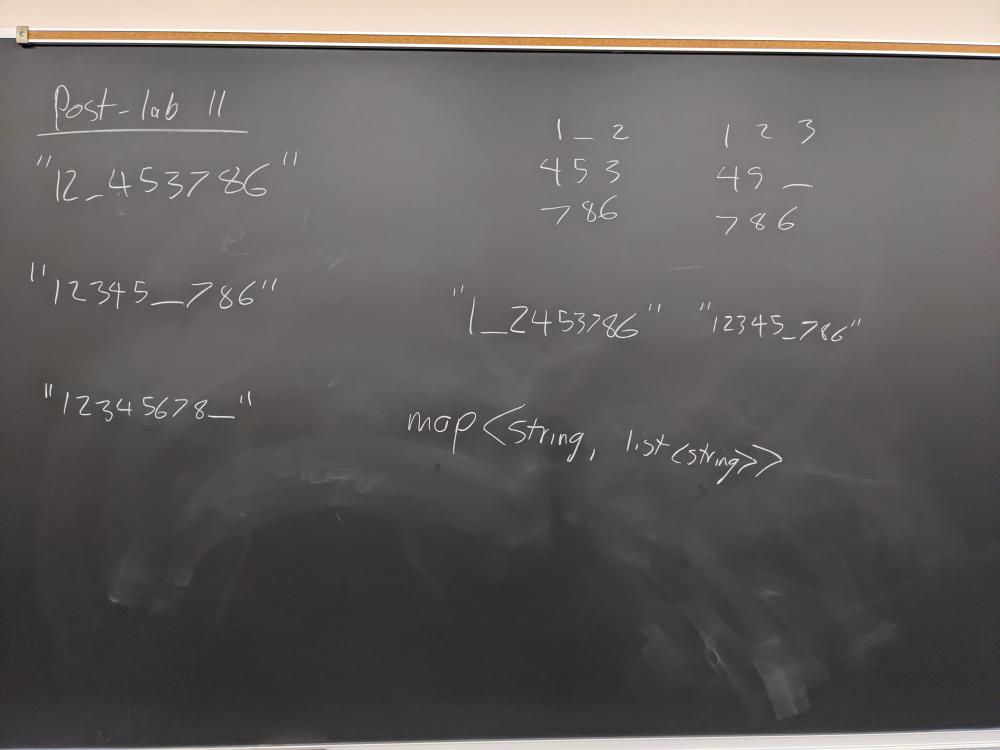 Post-lab 11
"12_453786"
"12345_786"
"12345678_"
1_2
453
786
1 2 3
49_
786
"1_2453786" "12345_786"
map<string, list<string>>